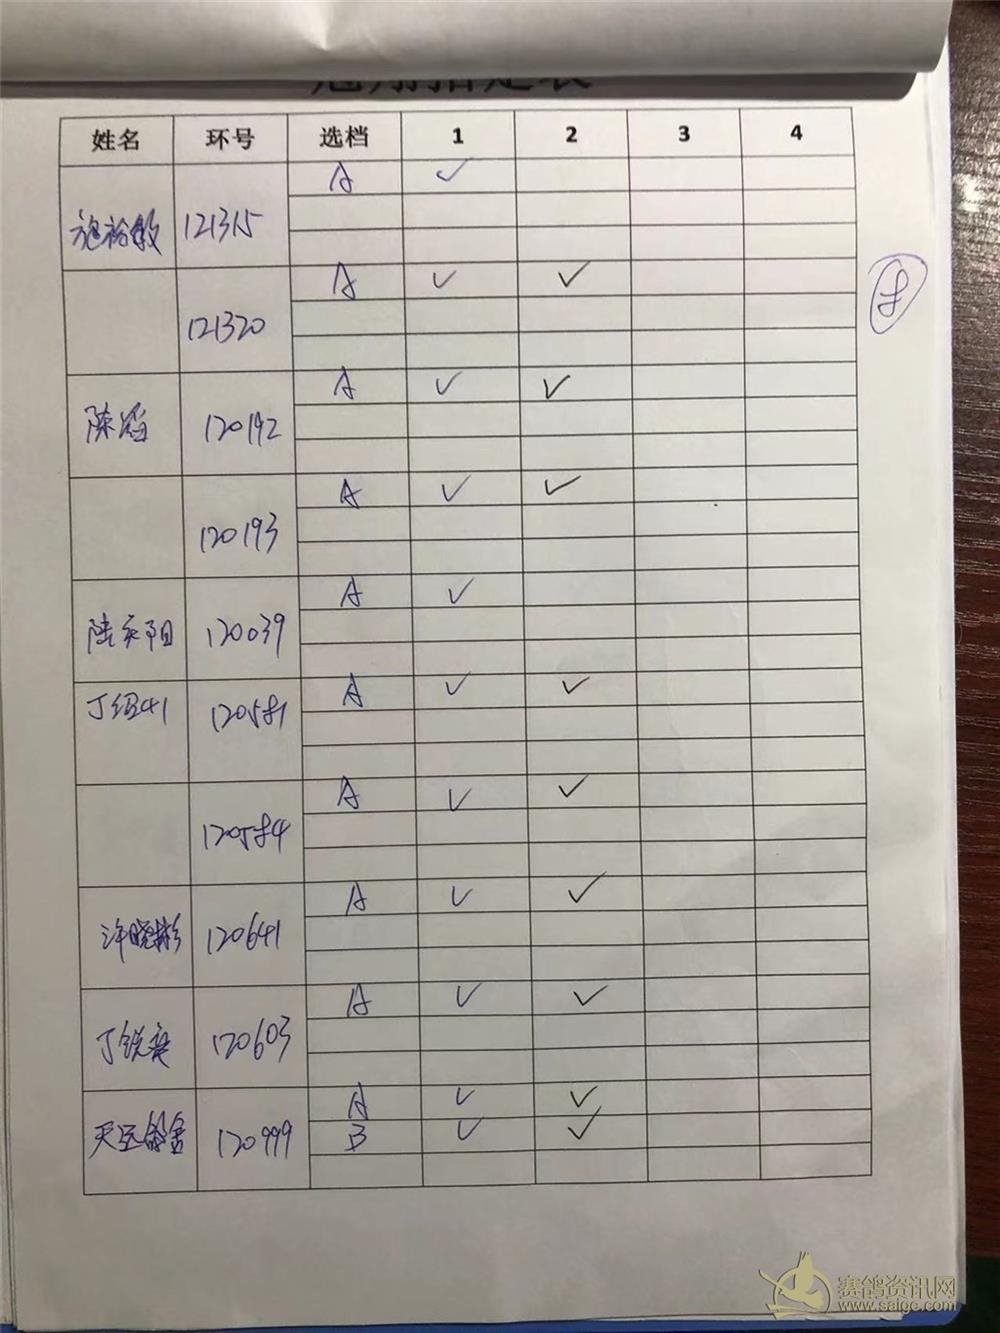 姓名 环号 选档 1 2 3 4
121315 A ✓
121320 A ✓ ✓
陈滔 120192 A ✓ ✓
120193 A ✓ ✓
陆庆阳 120039 A ✓
丁绍41 120581 A ✓ ✓
120584 A ✓ ✓
许晓彬 120641 A ✓ ✓
丁锐英 120603 A ✓ ✓
天运鸽舍 120999 A ✓ ✓
B ✓ ✓
赛鸽资讯网
www.saige.com